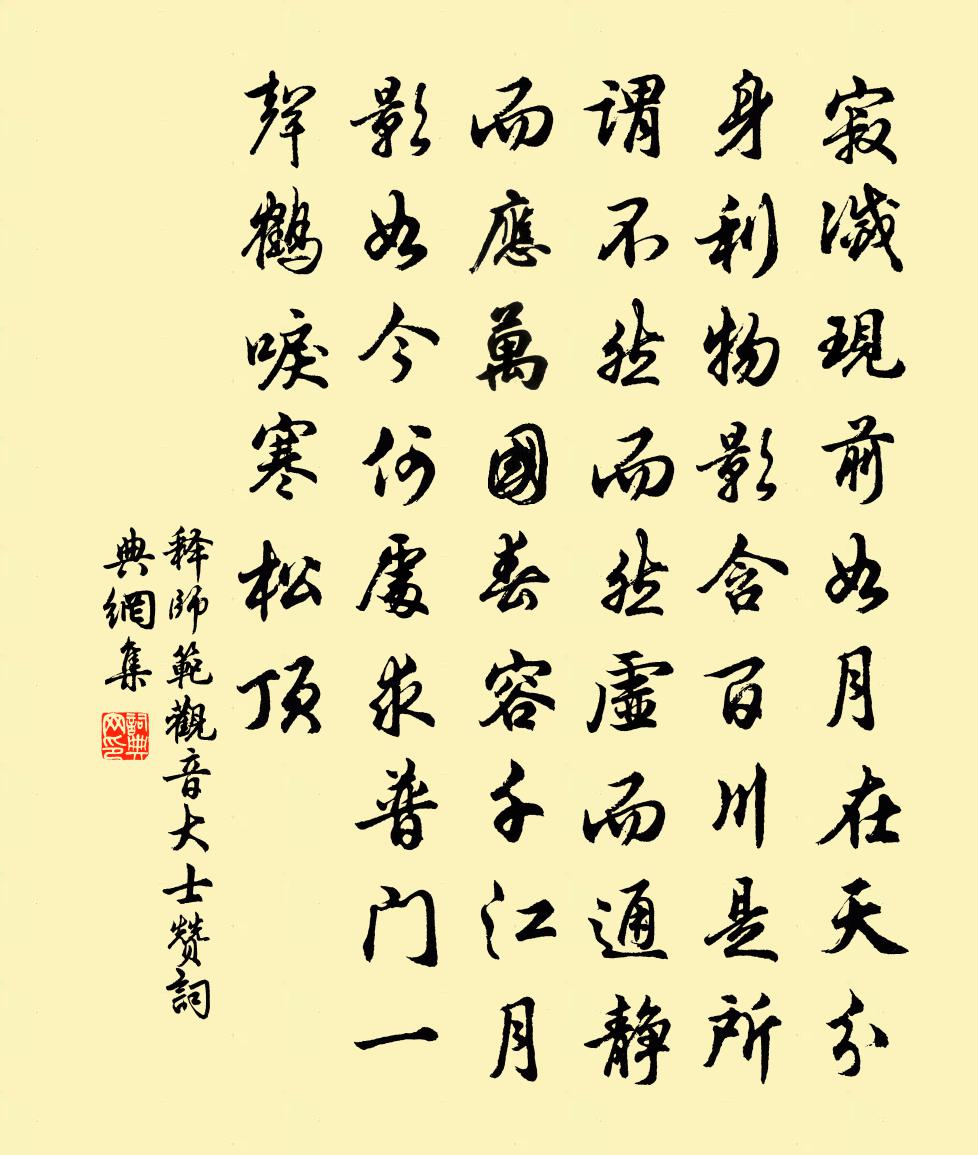 寂滅現前如月在天分
身利物影含百川是所
謂不然而然虛而通靜
而應萬國春容千江月
影如今何處求普門一
聲鶴唳寒松頂
释師範觀音大士赞詞
典網集
詞典网印